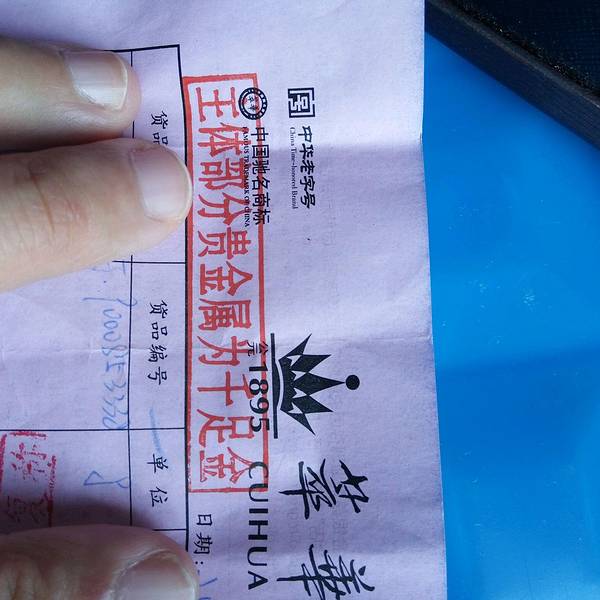 萃華
中华老字号
China Time-honored Brand
公元1895 CUIHUA
中国驰名商标
FAMOUS TRADEMARK OF CHINA
主体部分贵金属为千足金
日期:
货品
货品编号
单位